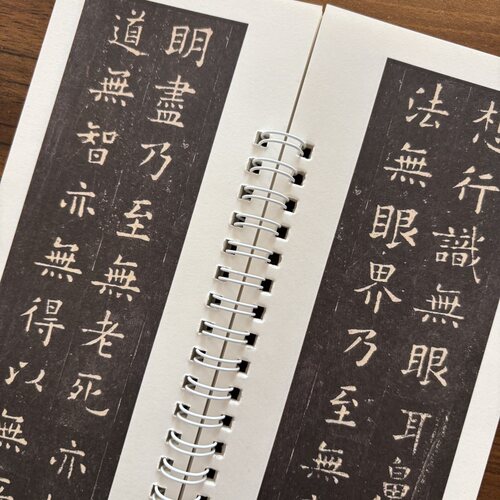 想行識無眼耳鼻
法無眼界乃至無
明盡乃至無老死亦
道無智亦無得以無